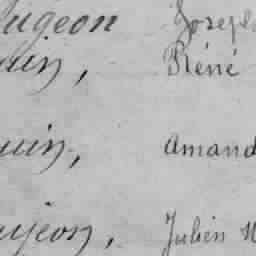 ugeon Joseph
uin, Réné
uin, Amand
ujeon, Julien